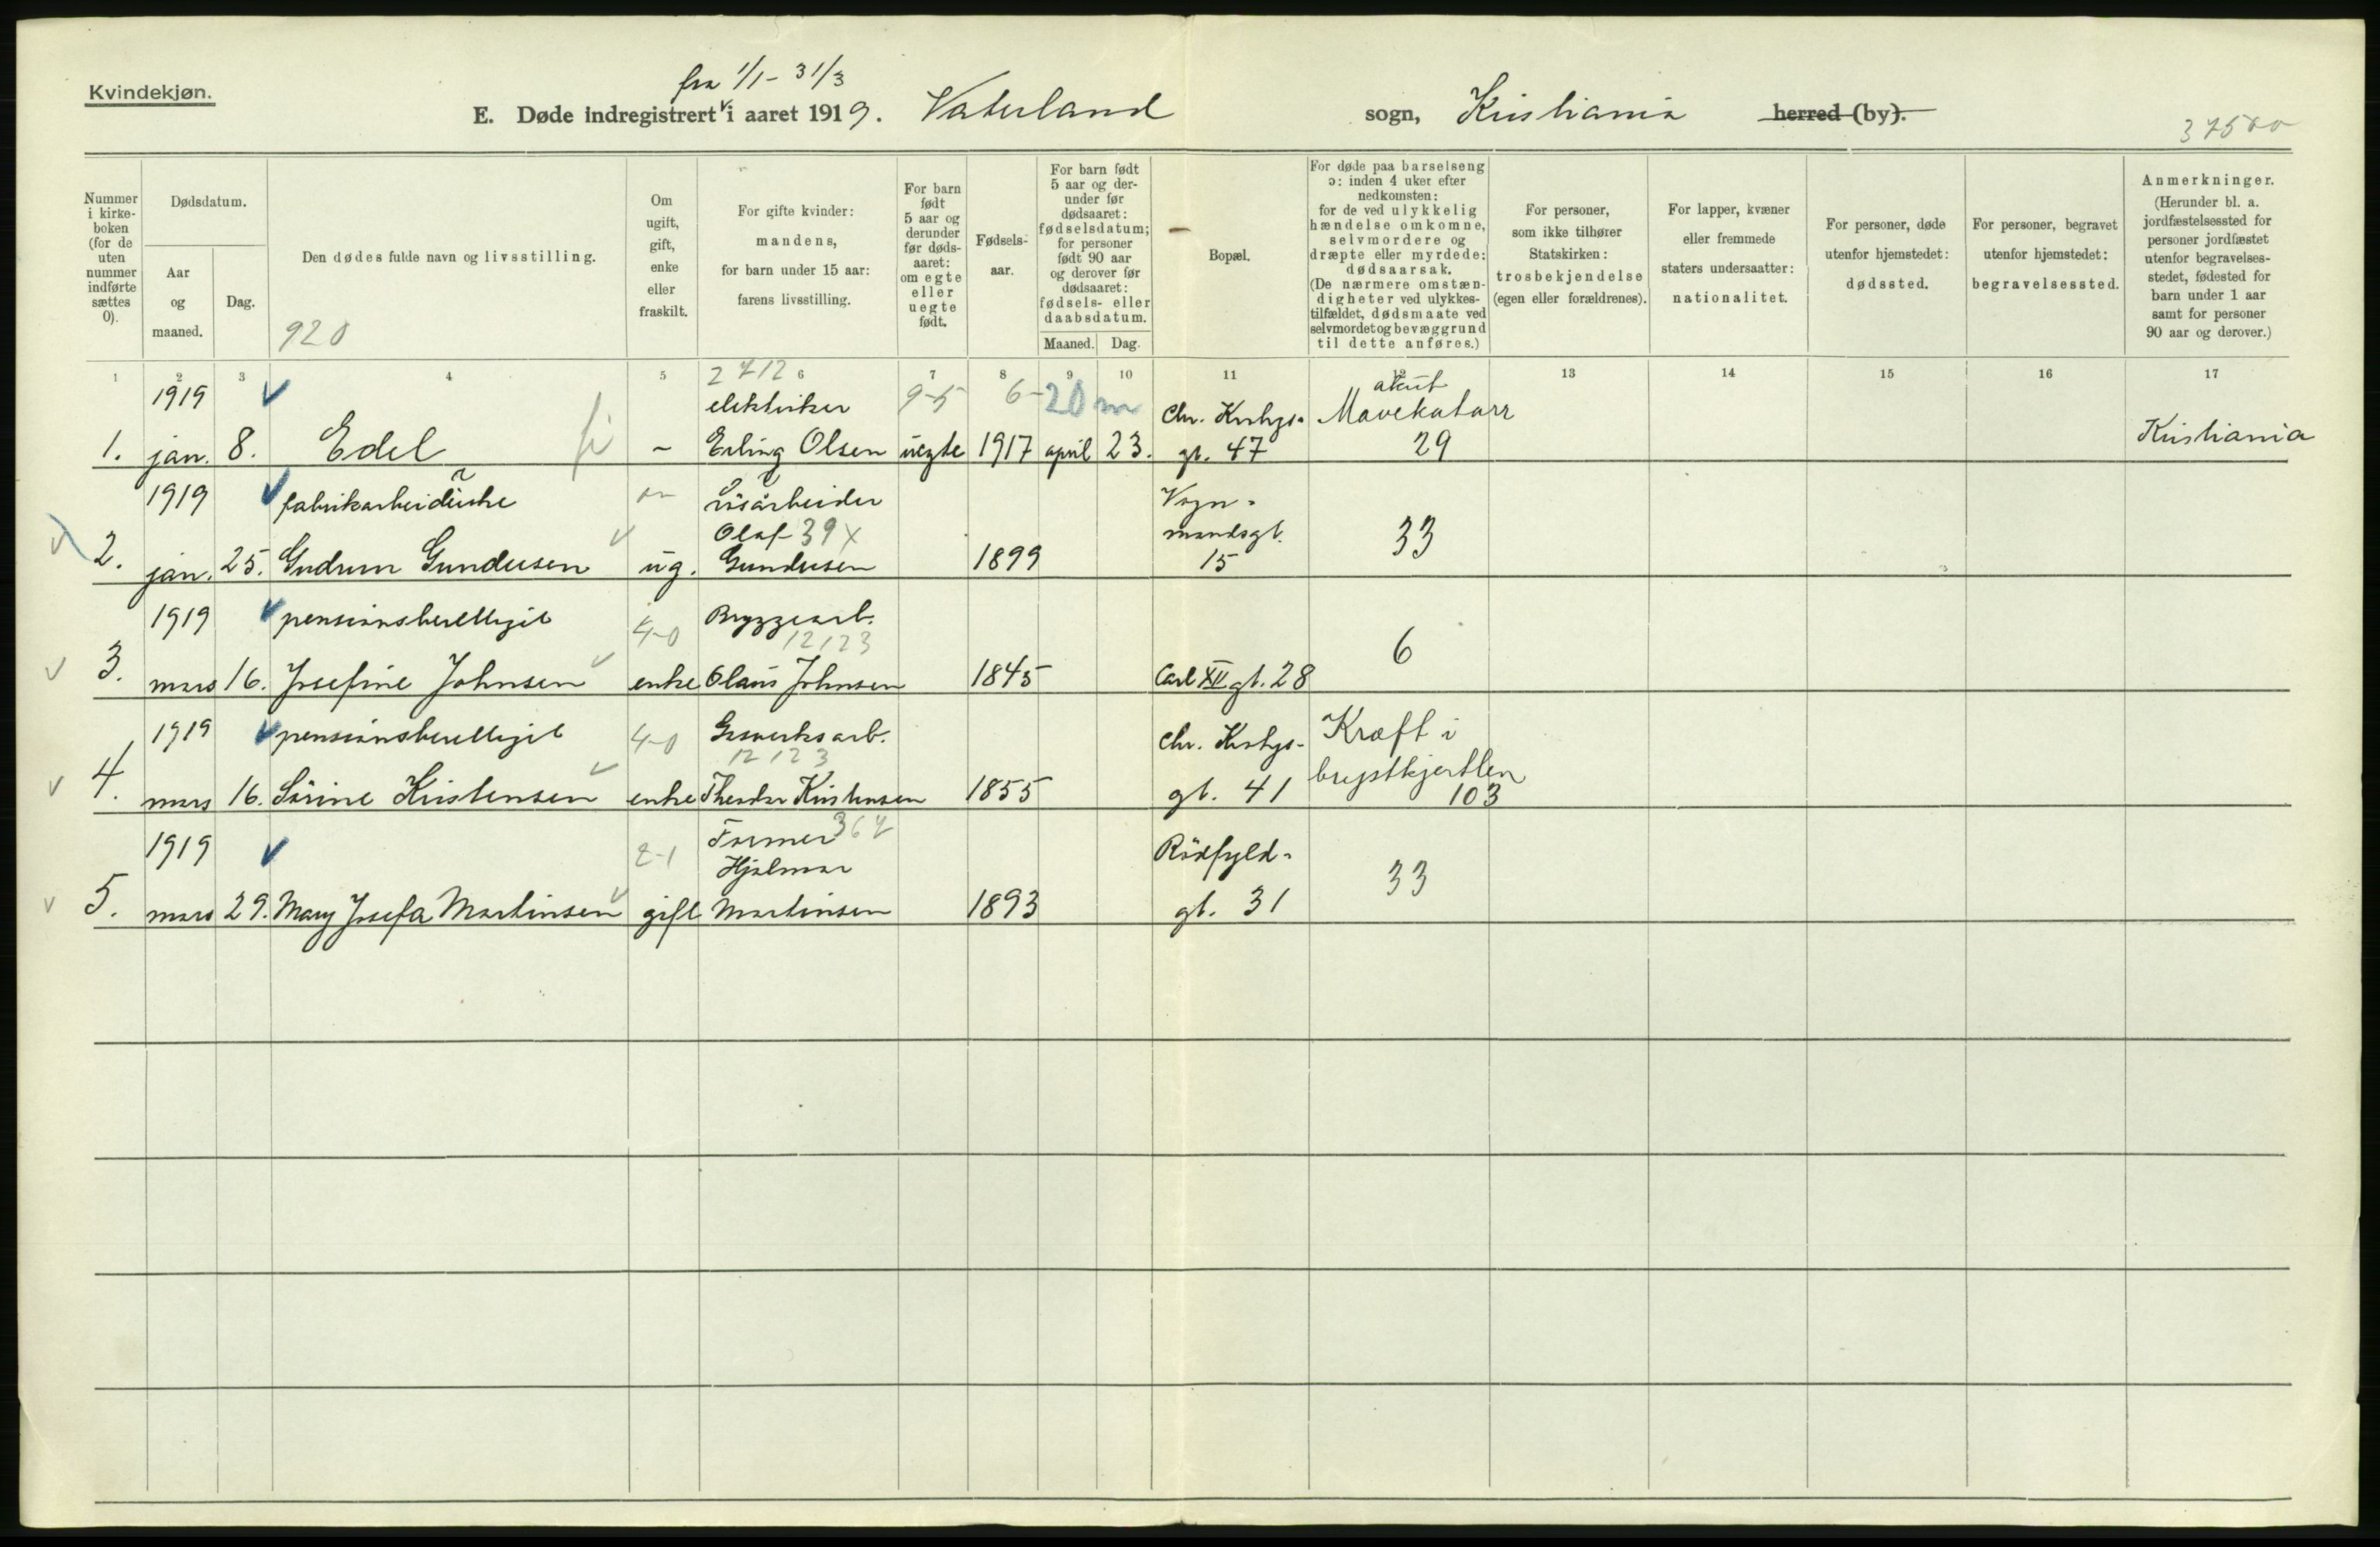 Kvindekjøn.
fra 1/1 - 31/3
E. Døde indregistrert i aaret 1919. Vaterland sogn, Kristiania herred (by).
37500
Nummer i kirke-boken (for de uten nummer indførte sættes 0).
Dødsdatum.
Aar og maaned.
Dag.
Den dødes fulde navn og livsstilling.
920
Om ugift, gift, enke eller fraskilt.
For gifte kvinder: mandens, for barn under 15 aar: farens livsstilling.
For barn født 5 aar og derunder før døds-aaret: om egte eller uegte født.
Fødsels-aar.
For barn født 5 aar og der-under før dødsaaret: fødselsdatum; for personer født 90 aar og derover før dødsaaret: fødsels- eller daabsdatum.
Maaned. Dag.
Bopæl.
For døde paa barselseng ɔ: inden 4 uker efter nedkomsten: for de ved ulykkelig hændelse omkomne, selvmordere og dræpte eller myrdede: dødsaarsak. (De nærmere omstæn-digheter ved ulykkes-tilfældet, dødsmaate ved selvmordet og bevæggrund til dette anføres.)
For personer, som ikke tilhører Statskirken: trosbekjendelse (egen eller forældrenes).
For lapper, kvæner eller fremmede staters undersaatter: nationalitet.
For personer, døde utenfor hjemstedet: dødssted.
For personer, begravet utenfor hjemstedet: begravelsessted.
Anmerkninger. (Herunder bl. a. jordfæstelsessted for personer jordfæstet utenfor begravelses-stedet, fødested for barn under 1 aar samt for personer 90 aar og derover.)
1 2 3 4 5 6 7 8 9 10 11 12 13 14 15 16 17
1919 elektriker 9-5 6- 20 m Chr. Krohgs- akut Mavekatarr
1. jan. 8. Edel - Erling Olsen uegte 1917 april 23. gt. 47 29 Kristiania
1919 fabrikarbeiderske løsarbeider Vogn-
Olaf 39x mandsgt. 33
2. jan. 25. Gudrun Gundersen ug. Gundersen 1899 15
1919 pensionsberettiget 4-0 Bryggearb.
12123 6
3. mars 16. Josefine Johnsen enke Olaus Johnsen 1845 Carl XII gt. 28
1919 pensionsberettiget 4-0 Gasverksarb. Chr. Krohgs- Kræft i
12123 brystkjertlen
4. mars 16. Sørine Kristensen enke Theodor Kristensen 1855 gt. 41 103
1919 2-1 Former 367 Rødfyld-
Hjalmar 33
5. mars 29. Mary Josefa Martinsen gift Martinsen 1893 gt. 31